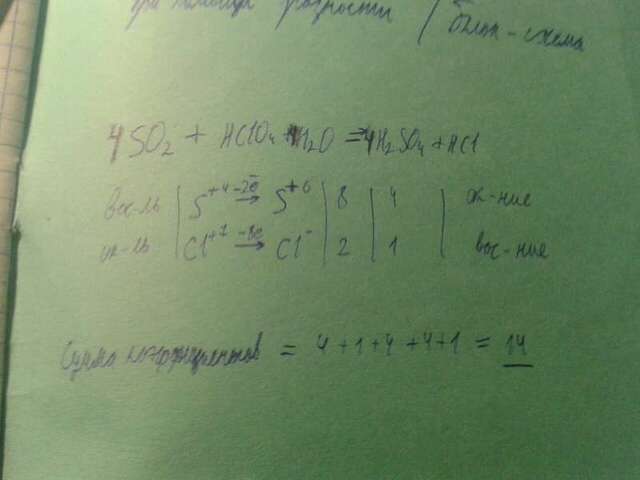 при помощи
блок-схема
4SO2 + HClO4 + 4H2O = 4H2SO4 + HCl
вос-ль | S+4 -2e̅ → S+6 | 8 | 4 | ок-ние
ок-ль | Cl+7 -8e → Cl- | 2 | 1 | вос-ние
Сумма коэффициентов = 4+1+4+4+1 = 14